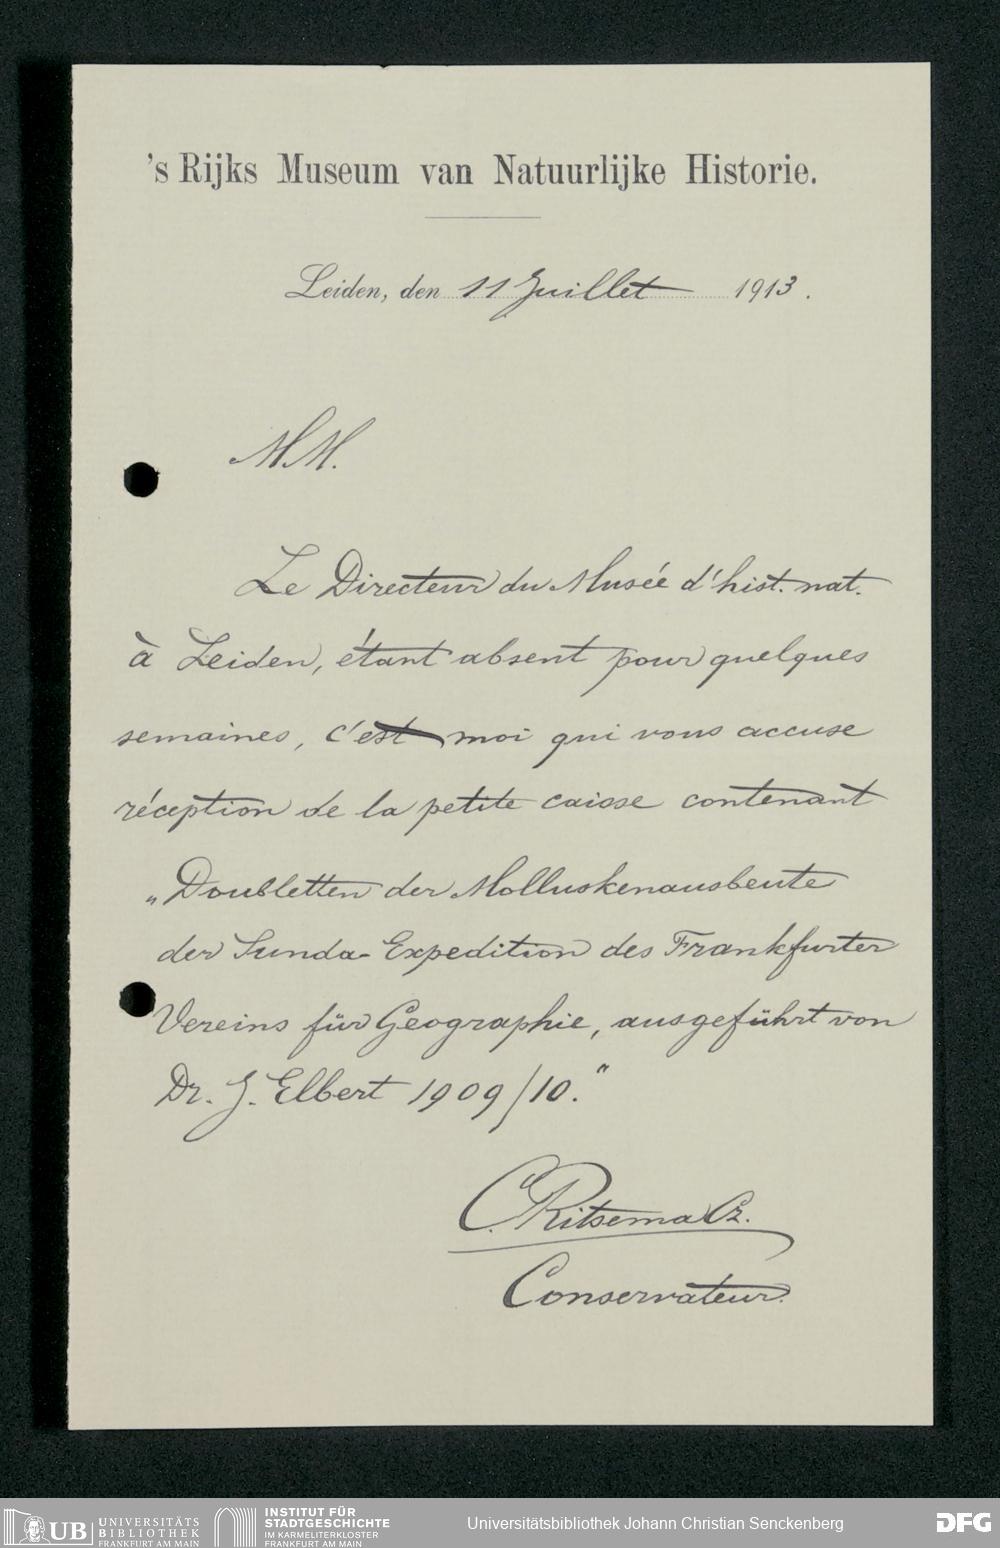 's Rijks Museum van Natuurlijke Historie.
Leiden, den 11 Juillet 1913.
M.M.
Le Directeur du Musée d'hist. nat.
à Leiden, étant absent pour quelques
semaines, c'est moi qui vous accuse
réception de la petite caisse contenant
„Doubletten der Molluskenausbeute
der Sunda-Expedition des Frankfurter
Vereins für Geographie, ausgeführt von
Dr. J. Elbert 1909/10."
C. Ritsema Cz.
Conservateur.
UB UNIVERSITÄTS BIBLIOTHEK FRANKFURT AM MAIN
INSTITUT FÜR STADTGESCHICHTE IM KARMELITERKLOSTER FRANKFURT AM MAIN
Universitätsbibliothek Johann Christian Senckenberg
DFG